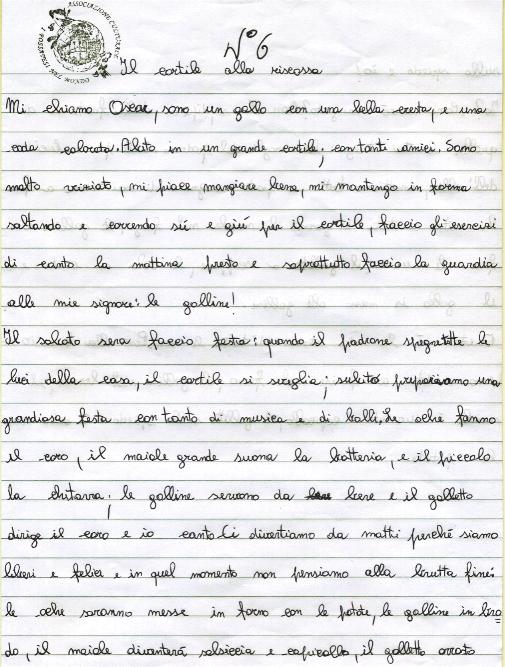 N° 6
Il cortile alla riscossa
Mi chiamo Oscar, sono un gallo con una bella cresta, e una
coda colorata. Abito in un grande cortile; con tanti amici. Sono
molto viziato, mi piace mangiare bene, mi mantengo in forma
saltando e correndo sú e giú per il cortile, faccio gli esercizi
di canto la mattina presto e soprattutto faccio la guardia
alle mie signore: le galline!
Il sabato sera faccio festa: quando il padrone spegne tutte le
luci della casa, il cortile si sveglia; subito prepariamo una
grandiosa festa con tanto di musica e di balli. Le oche fanno
il coro, il maiale grande suona la batteria, e il piccolo
la chitarra; le galline servono da bere e il galletto
dirige il coro e io canto. Ci divertiamo da matti perché siamo
liberi e felici e in quel momento non pensiamo alla brutta fine:
le oche saranno messe in forno con le patate, le galline in bro
do, il maiale diventerá salsiccia e capicollo, il galletto arrosto